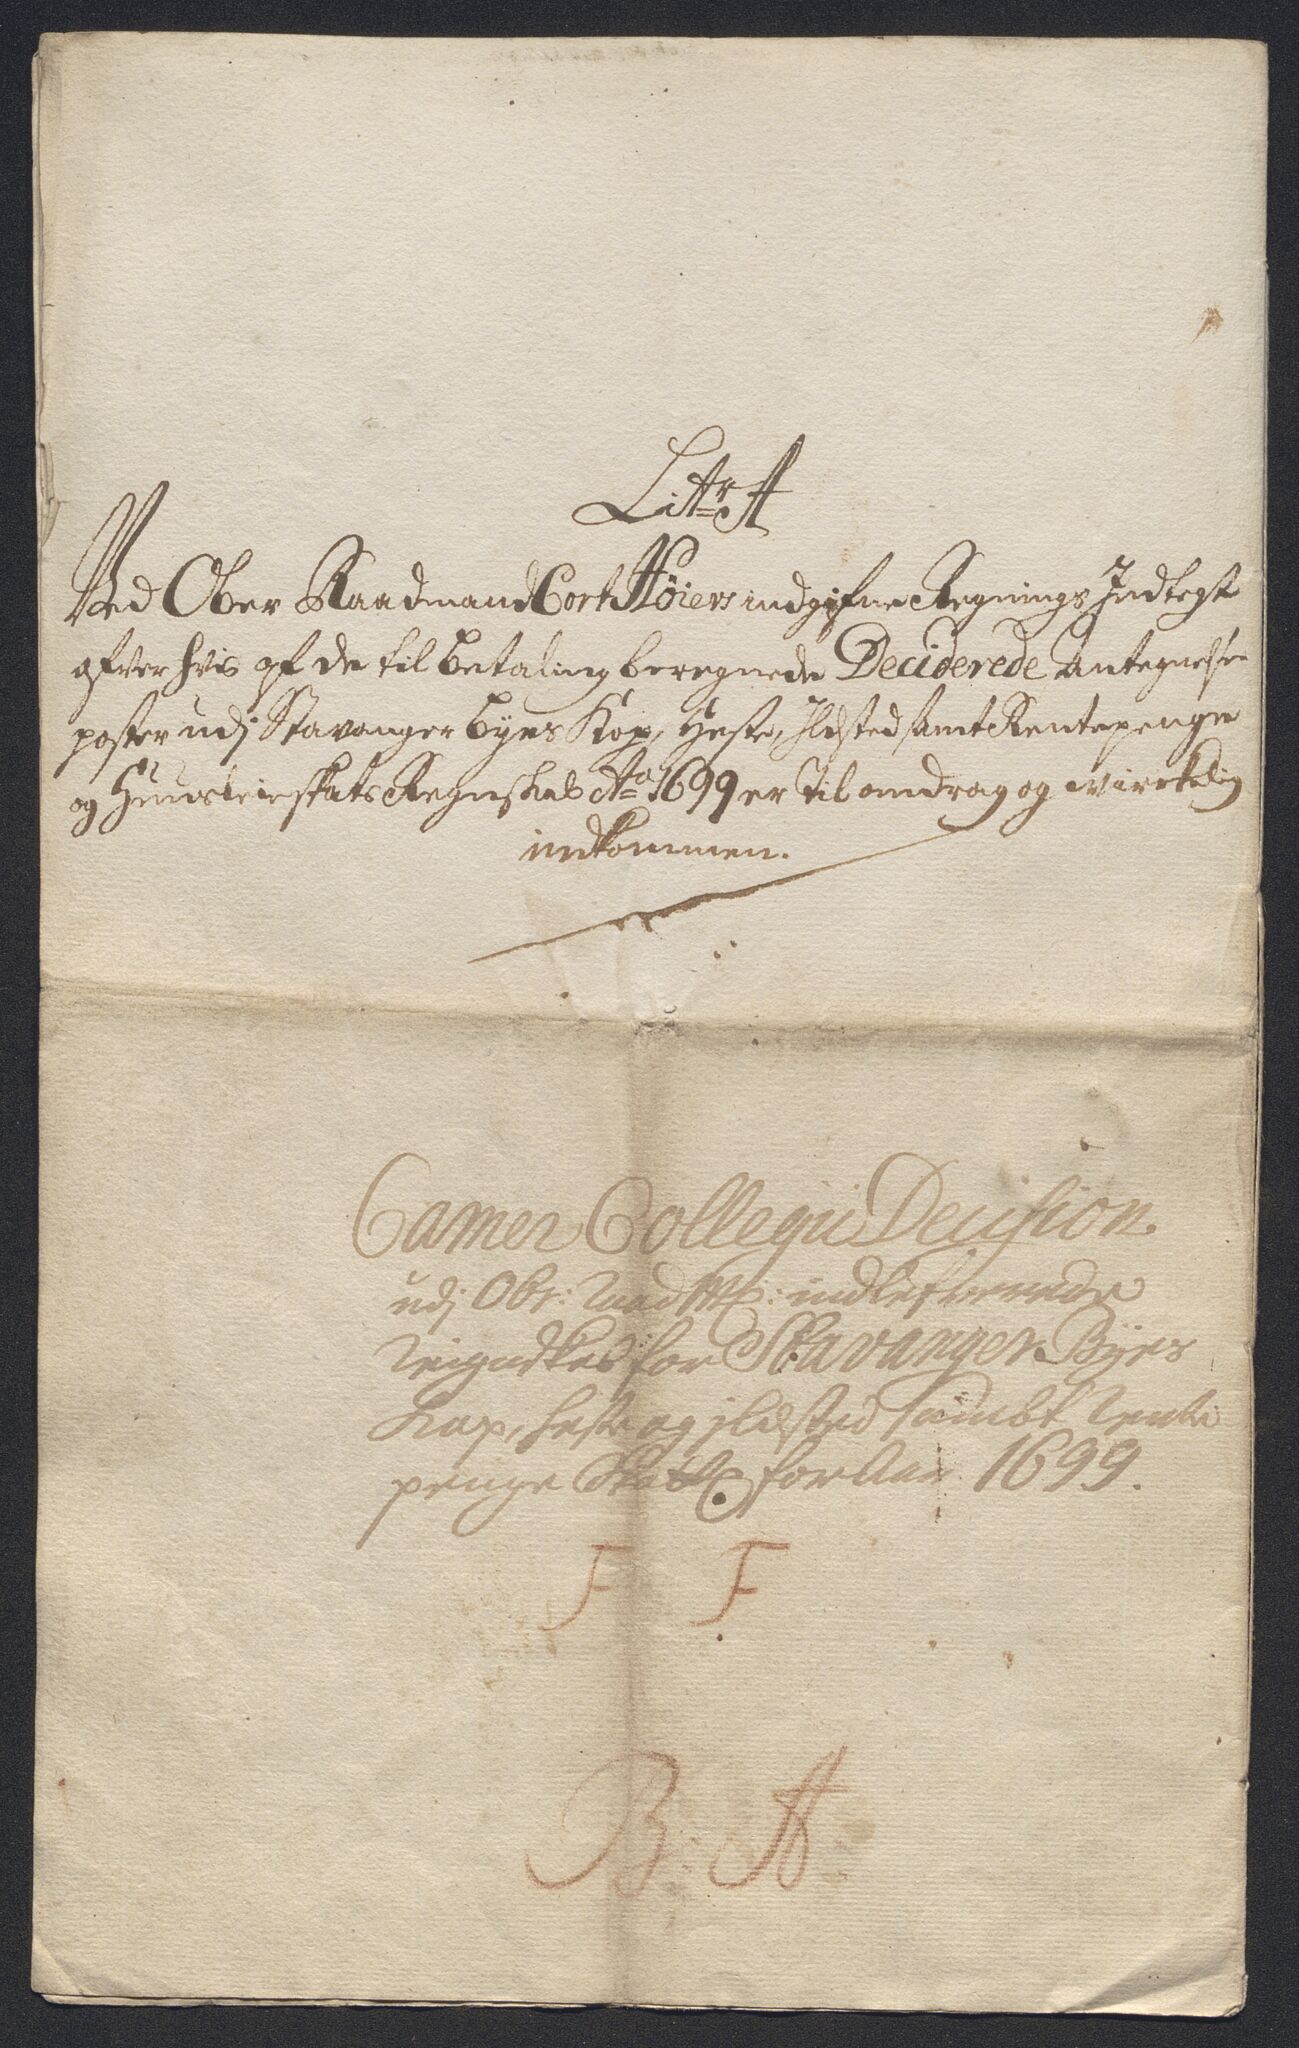 Litr A
Ved Ober Raadmand Cort Höiers indgifne Regnings Indtegt
ofver hvis af de til betaling beregnede Deciderede Antegnelse
poster udj Stavanger Byes Kop, Heste, Ildsted samt Rentepenge
og Huusleieskats Regnskab Ao 1699 er Til andrag og wirckelig
indkommen.
Camer Collegii Decision
udj Obr: Raad M: indlefwerede
Reignskab for Stavanger Byes
Kop, heste og ildsted sambt Rente
penge Skatt for Aar 1699.
F F
B: A: